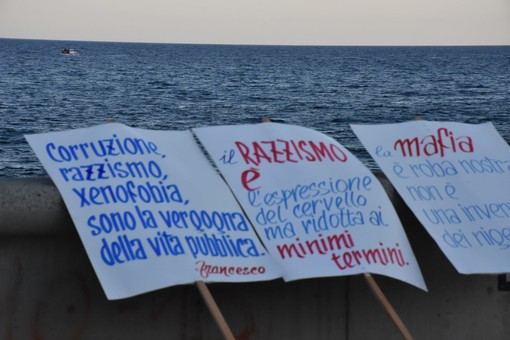 Corruzione,
razzismo,
xenofobia,
sono la vergogna
della vita pubblica.
Francesco
il RAZZISMO
È
l'espressione
del cervello
ma ridotta ai
minimi
termini.
la mafia
è roba nostra
non è
una
dei